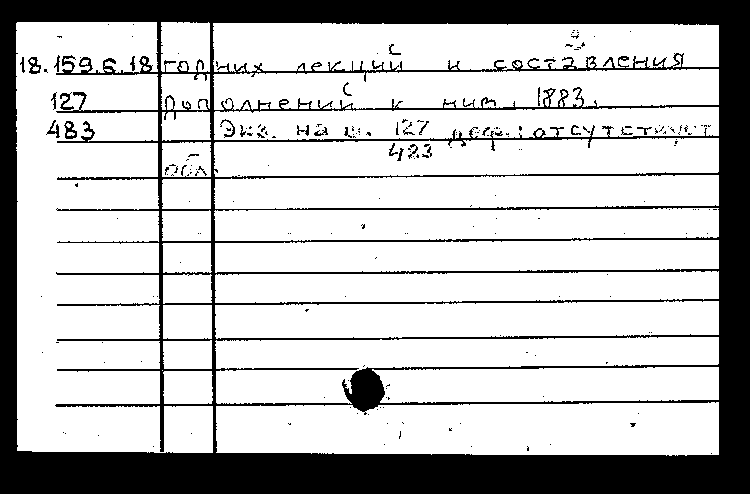 18.159.6.18 годних лекций и составления
127 дополнений к ним, 1883.
483 Экз. на ш. 127 деф.: отсутствуют
423
обл.